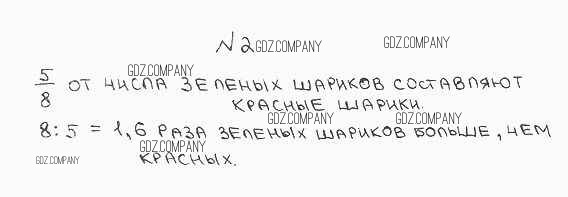 N2 GDZ.COMPANY GDZ.COMPANY
GDZ.COMPANY
5/8 ОТ ЧИСЛА ЗЕЛЕНЫХ ШАРИКОВ СОСТАВЛЯЮТ
КРАСНЫЕ ШАРИКИ.
GDZ.COMPANY GDZ.COMPANY
8:5 = 1,6 РАЗА ЗЕЛЕНЫХ ШАРИКОВ БОЛЬШЕ, ЧЕМ
GDZ.COMPANY
GDZ.COMPANY КРАСНЫХ.